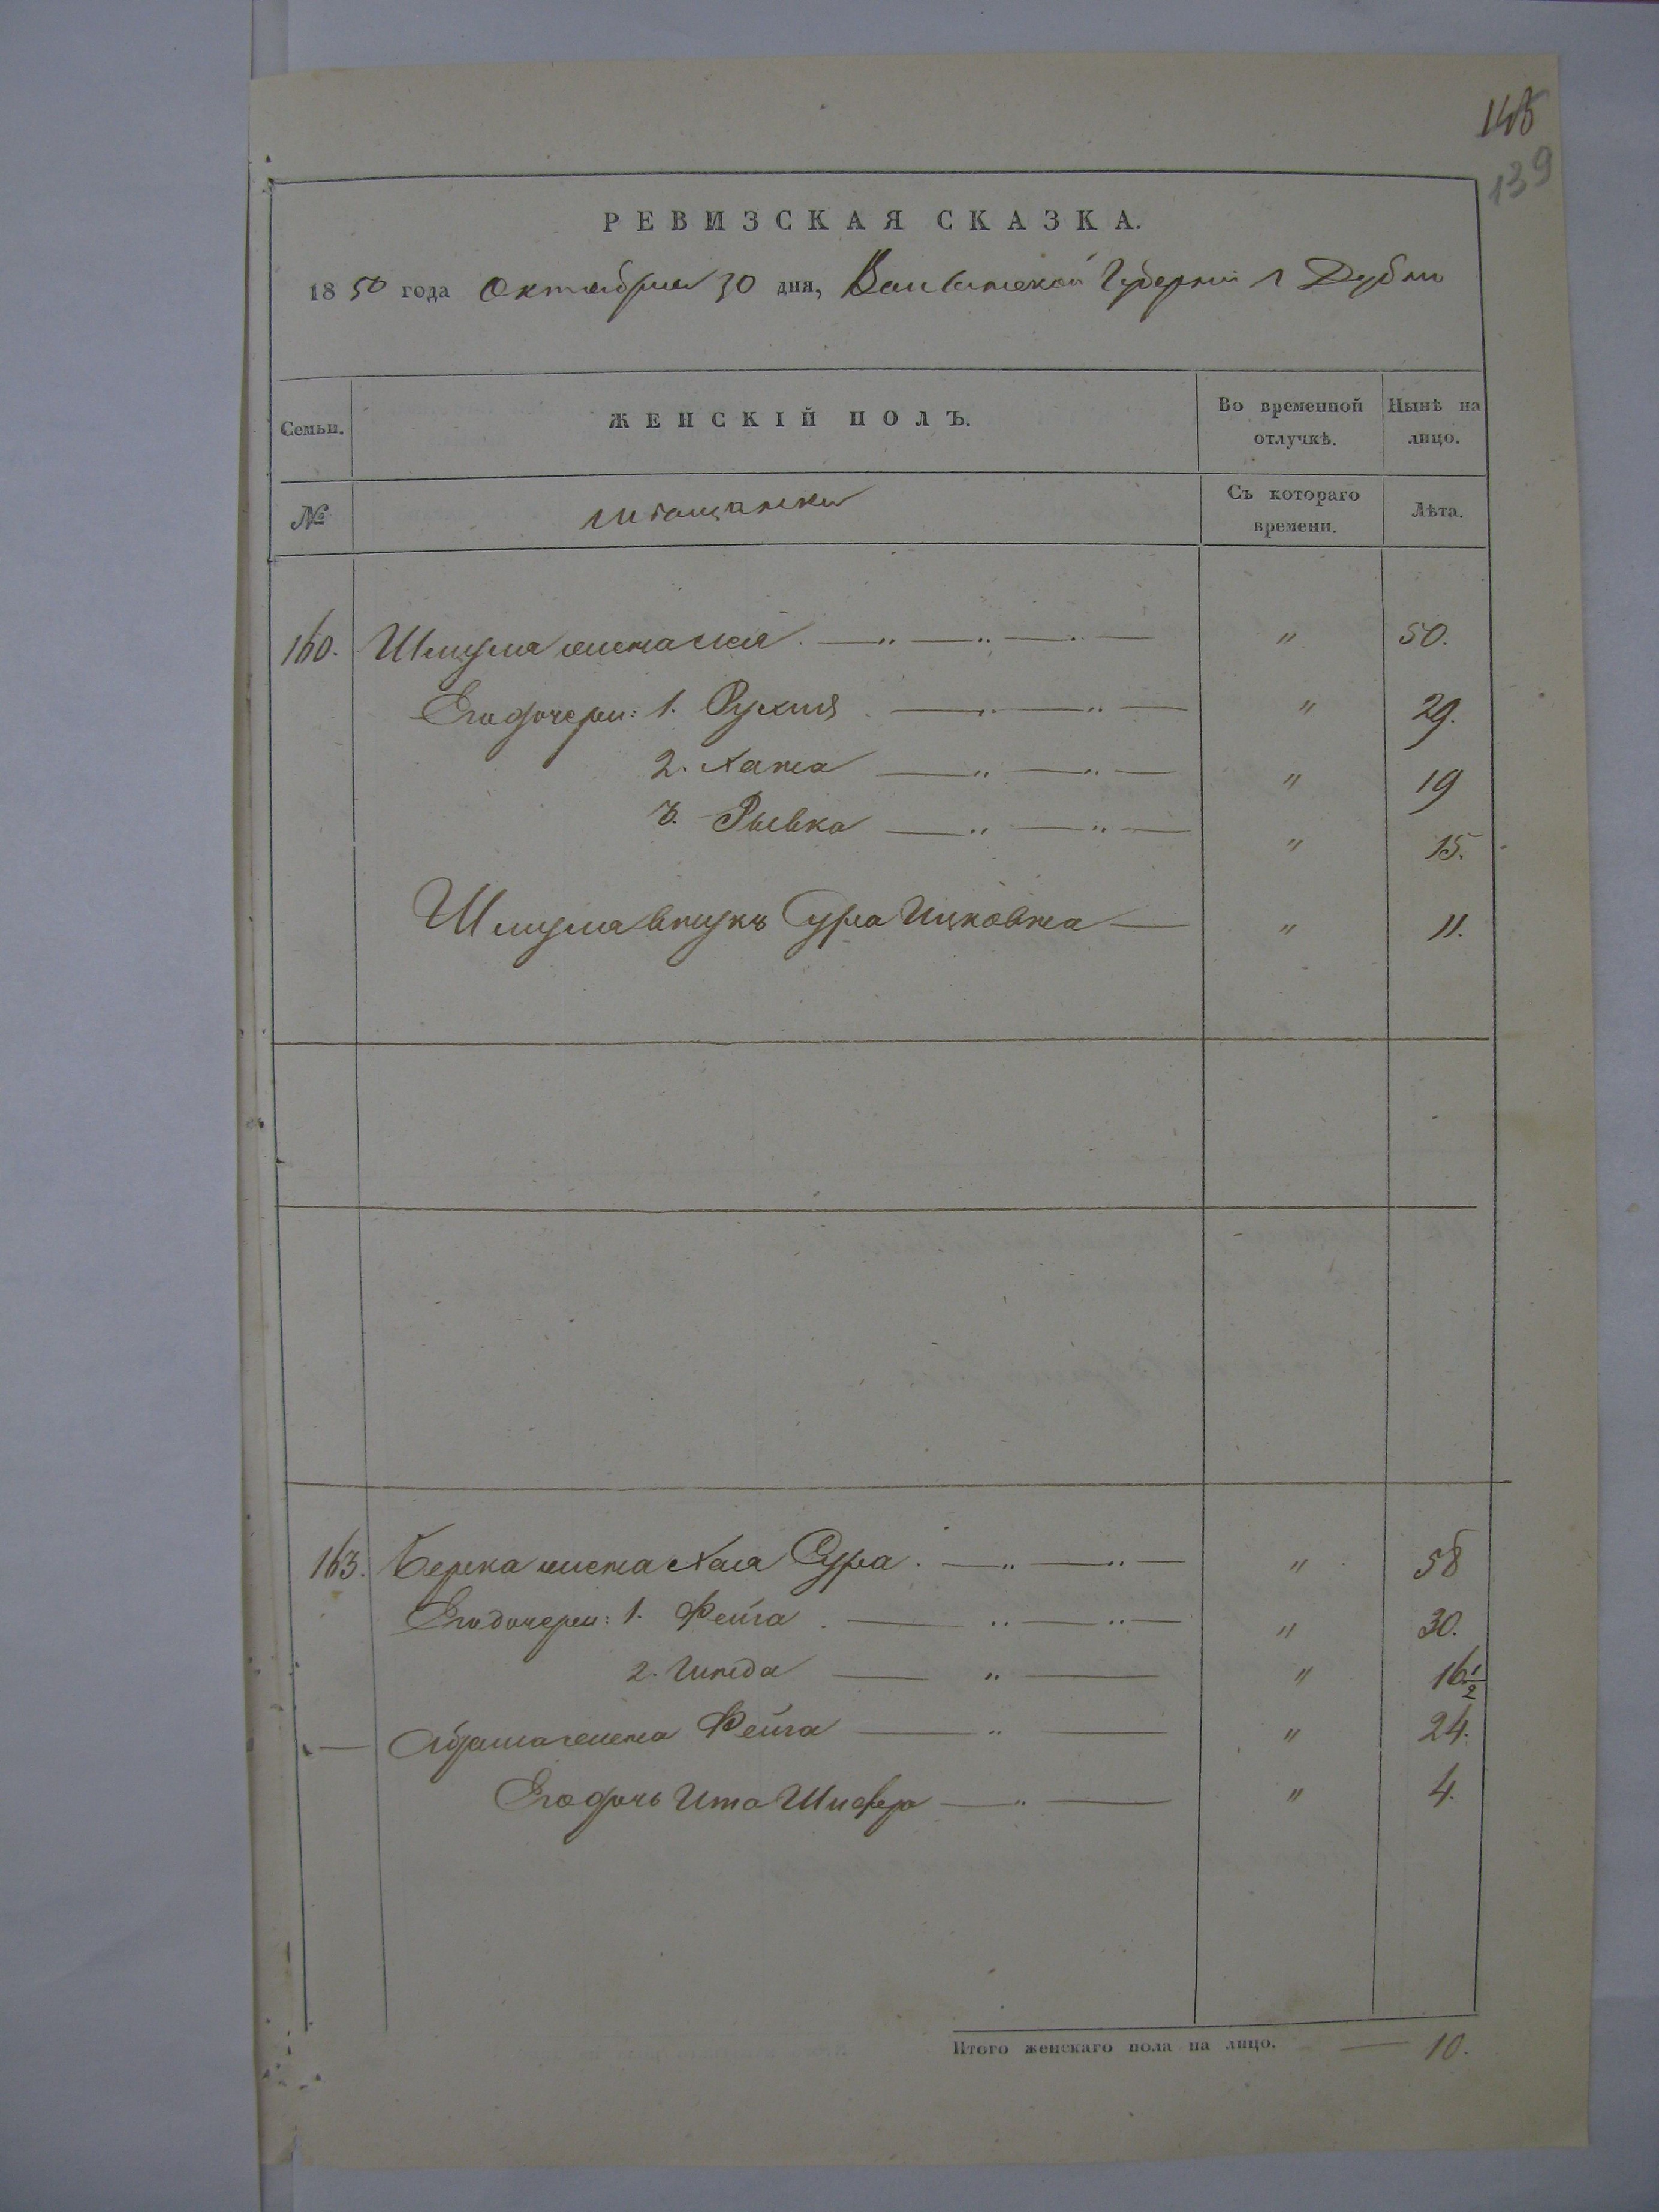 139
РЕВИЗСКАЯ СКАЗКА.
1850 года Октября 30 дня, Волынской Губернии г Дубно
Семьи. ЖЕНСКІЙ ПОЛЪ. Во временной отлучкѣ. Нынѣ на лицо.
№ мѣщанки Съ котораго времени. Лѣта.
160. Шмуля жена Лея " 50.
Его дочери: 1. Рухля " 29.
2. Хана " 19
3. Рывка " 15.
Шмуля внукъ Сура Ицковна " 11.
163. Берка жена Хая Сура " 58
Его дочери: 1. Фейга " 30.
2. Гинда " 16 1/2
Абрама жена Фейга " 24.
Его дочь Ита Шифра " 4.
Итого женскаго пола на лицо. 10.